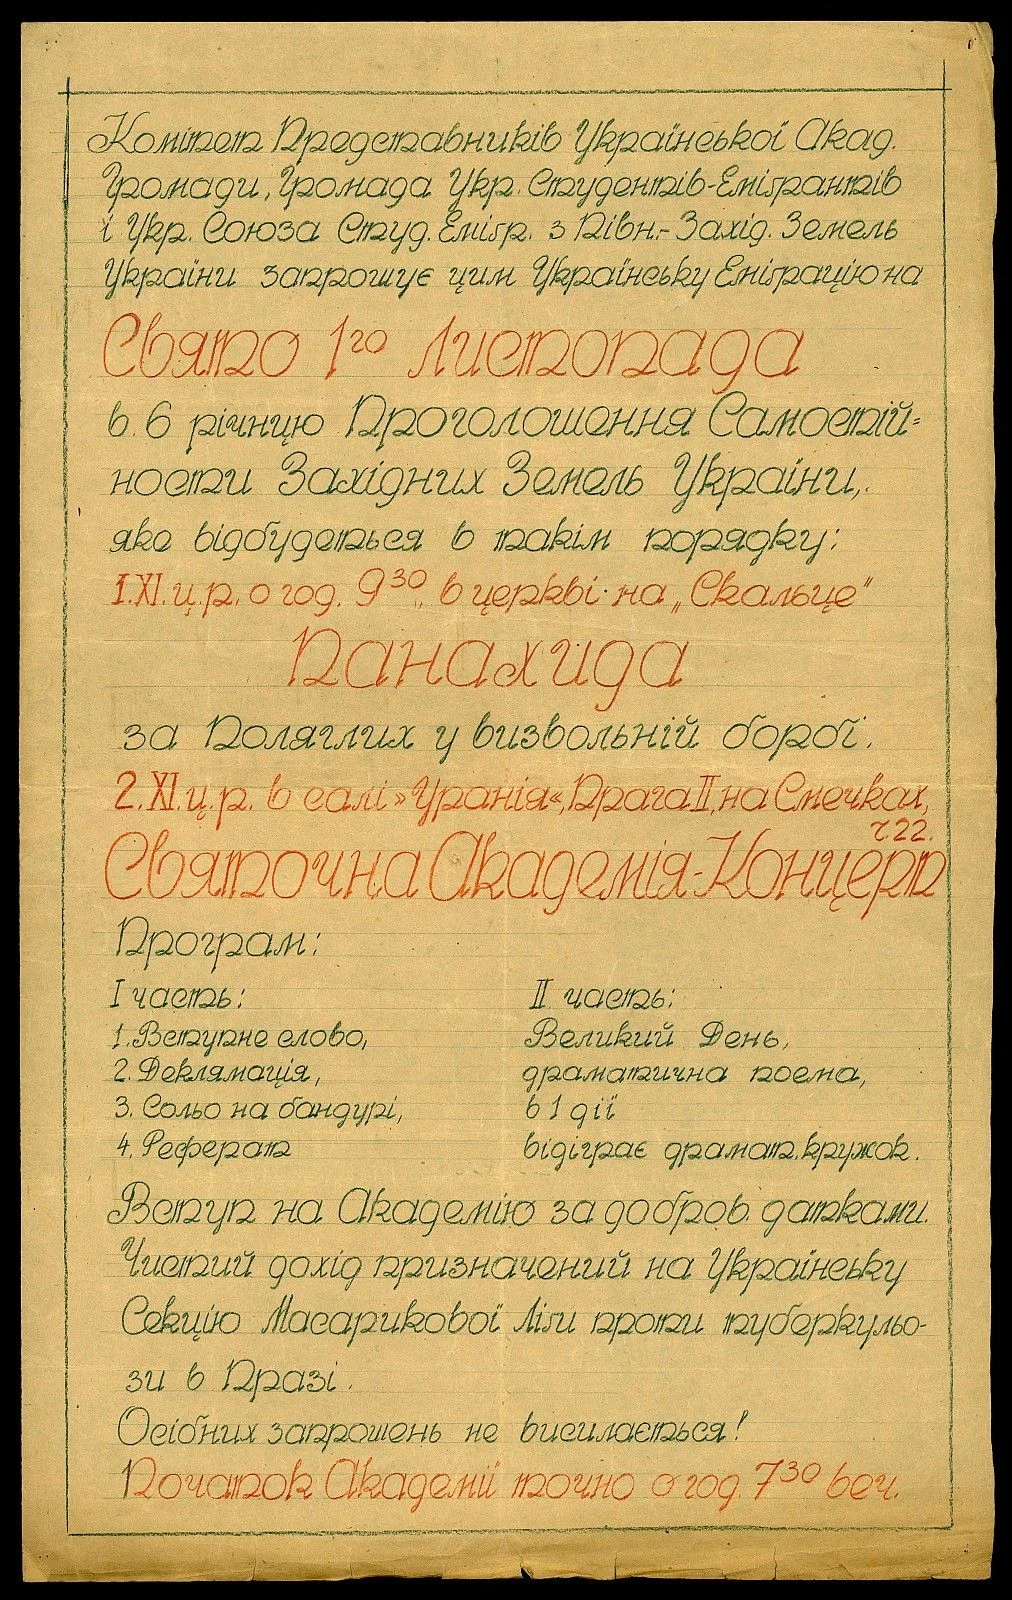 Комітет Представників Української Акад.
Громади, Громада Укр. Студентів-Еміґрантів
і Укр. Союза Студ. Еміґр. з Півн.- Захід. Земель
України запрошує цим Українську Еміґрацію на
Свято 1го Листопада
в 6 річницю Проголошення Самостій=
ности Західних Земель України,
яке відбудеться в такім порядку:
1.XI.ц.р. о год. 9 30, в церкві на „Скальце"
Панахида
за Поляглих у визвольній борбі.
2.XI.ц.р. в салі »Уранія«, Прага II, на Смечках,
ч 22.
Святочна Академія-Концерт
Програм:
I часть:
1. Вступне слово,
2. Деклямація,
3. Сольо на бандурі,
4. Реферат
II часть:
Великий День,
драматична поема,
в 1 дії
відіграє драмат. кружок.
Вступ на Академію за добров. датками.
Чистий дохід призначений на Українську
Секцію Масарикової Ліґи проти туберкульо-
зи в Празі.
Осібних запрошень не висилається!
Початок Академії точно о год. 7 30 веч.